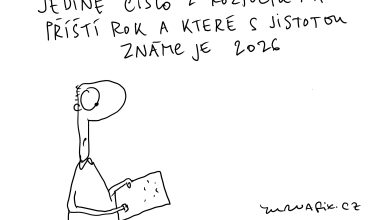 JEDINÉ ČÍSLO Z
PŘÍŠTÍ ROK A KTERÉ S JISTOTOU
ZNÁME JE 2026